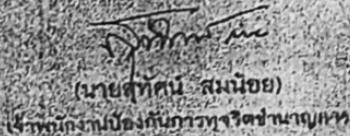 (นายสุทัศน์ สมน้อย)
เจ้าพนักงานป้องกันการทุจริตชำนาญการ